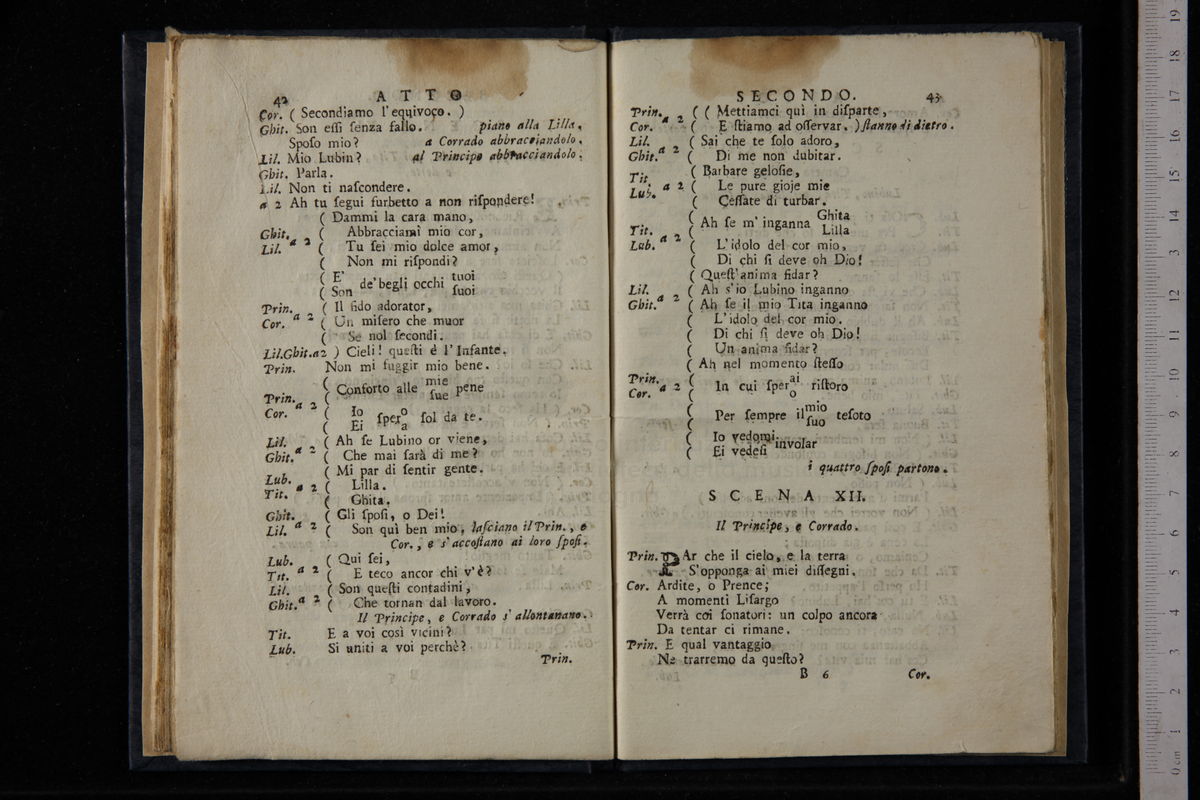 42 ATTO
Cor. ( Secondiamo l'equivoco. )
Ghit. Son eſſi ſenza fallo. piano alla Lilla,
Spoſo mio? a Corrado abbracciandolo.
Lil. Mio Lubin? al Principe abbracciandolo.
Ghit. Parla.
Lil. Non ti naſcondere.
a 2 Ah tu ſegui furbetto a non riſpondere!
( Dammi la cara mano,
Ghit. ( Abbracciami mio cor,
Lil. a 2 ( Tu ſei mio dolce amor,
( Non mi riſpondi?
( E' tuoi
de'begli occhi
( Son ſuoi
Prin. ( Il fido adorator,
Cor. a 2 ( Un miſero che muor
( Se nol ſecondi.
Lil.Ghit.a2 ) Cieli! queſti è l'Infante.
Prin. Non mi fuggir mio bene.
( mie
( Conforto alle pene
Prin. ( ſue
Cor. a 2 ( Io o
( ſper ſol da te.
( Ei a
Lil. ( Ah ſe Lubino or viene,
Ghit. a 2 ( Che mai ſarà di me?
( Mi par di ſentir gente.
Lub. ( Lilla.
Tit. a 2 ( Ghita.
Ghit. ( Gli ſpoſi, o Dei!
Lil. a 2 ( Son quì ben mio. laſciano il Prin., e
Cor., e s'accoſtano ai loro ſpoſi.
Lub. ( Qui ſei,
Tit. a 2 ( E teco ancor chi v'è?
Lil. ( Son queſti contadini,
Ghit. a 2 ( Che tornan dal lavoro.
Il Principe, e Corrado s'allontanano.
Tit. E a voi così vicini?
Lub. Si uniti a voi perchè?
Prin.
SECONDO. 43
Prin. ( ( Mettiamci quì in diſparte,
Cor. a 2 ( E ſtiamo ad oſſervar. ) ſtanno di dietro.
Lil. ( Sai che te ſolo adoro,
Ghit. a 2 ( Di me non dubitar.
Tit. ( Barbare geloſie,
Lub. a 2 ( Le pure gioje mie
( Ceſſate di turbar.
( Ghita
Tit. ( Ah ſe m'inganna
Lilla
Lub. a 2 ( L'idolo del cor mio,
( Di chi ſi deve oh Dio!
( Queſt'anima fidar?
Lil. ( Ah s'io Lubino inganno
Ghit. a 2 ( Ah ſe il mio Tita inganno
( L'idolo del cor mio.
( Di chi ſi deve oh Dio!
( Un anima fidar?
( Ah nel momento ſteſſo
Prin. ( ai
a 2 ( In cui ſper riſtoro
Cor. ( o
( mio
( Per ſempre il teſoto
( ſuo
( Io vedomi
involar
( Ei vedeſi
i quattro ſpoſi partono.
SCENA XII.
Il Principe, e Corrado.
Prin. PAr che il cielo, e la terra
S'opponga ai miei diſſegni.
Cor. Ardite, o Prence;
A momenti Liſargo
Verrà coi ſonatori: un colpo ancora
Da tentar ci rimane.
Prin. E qual vantaggio
Ne trarremo da queſto?
B 6 Cor.
0 cm 1 2 3 4 5 6 7 8 9 10 11 12 13 14 15 16 17 18 19